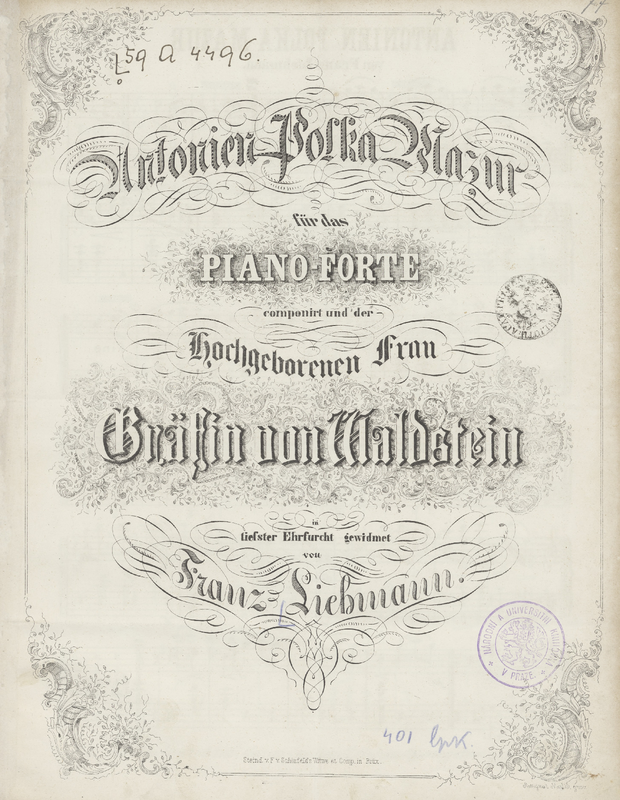 59 A 4496.
Antonien-Polka-Mazur
für das
PIANO-FORTE
componirt und der
Hochgeborenen Frau
Gräfin von Waldstein
in
tiefster Ehrfurcht gewidmet
von
Franz Liebmann.
NÁRODNÍ A UNIVERSITNÍ KNIHOVNA
V PRAZE
401
Steind. v. F. v. Schönfeld's Witwe et Comp. in Prag.